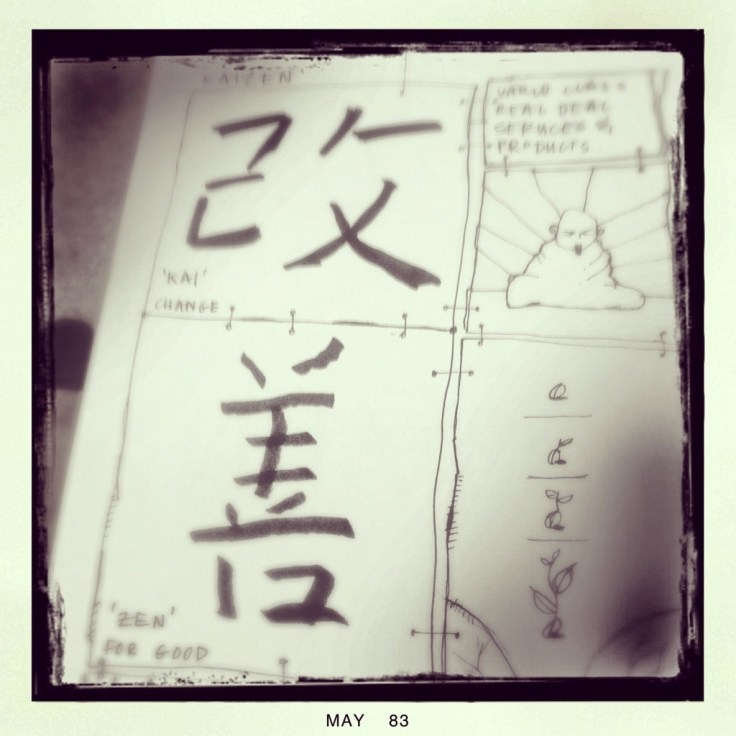 KAIZEN
改
'KAI'
CHANGE
善
'ZEN'
FOR GOOD
WORLD CLASS
REAL DEAL
SERVICES &
PRODUCTS
MAY 83